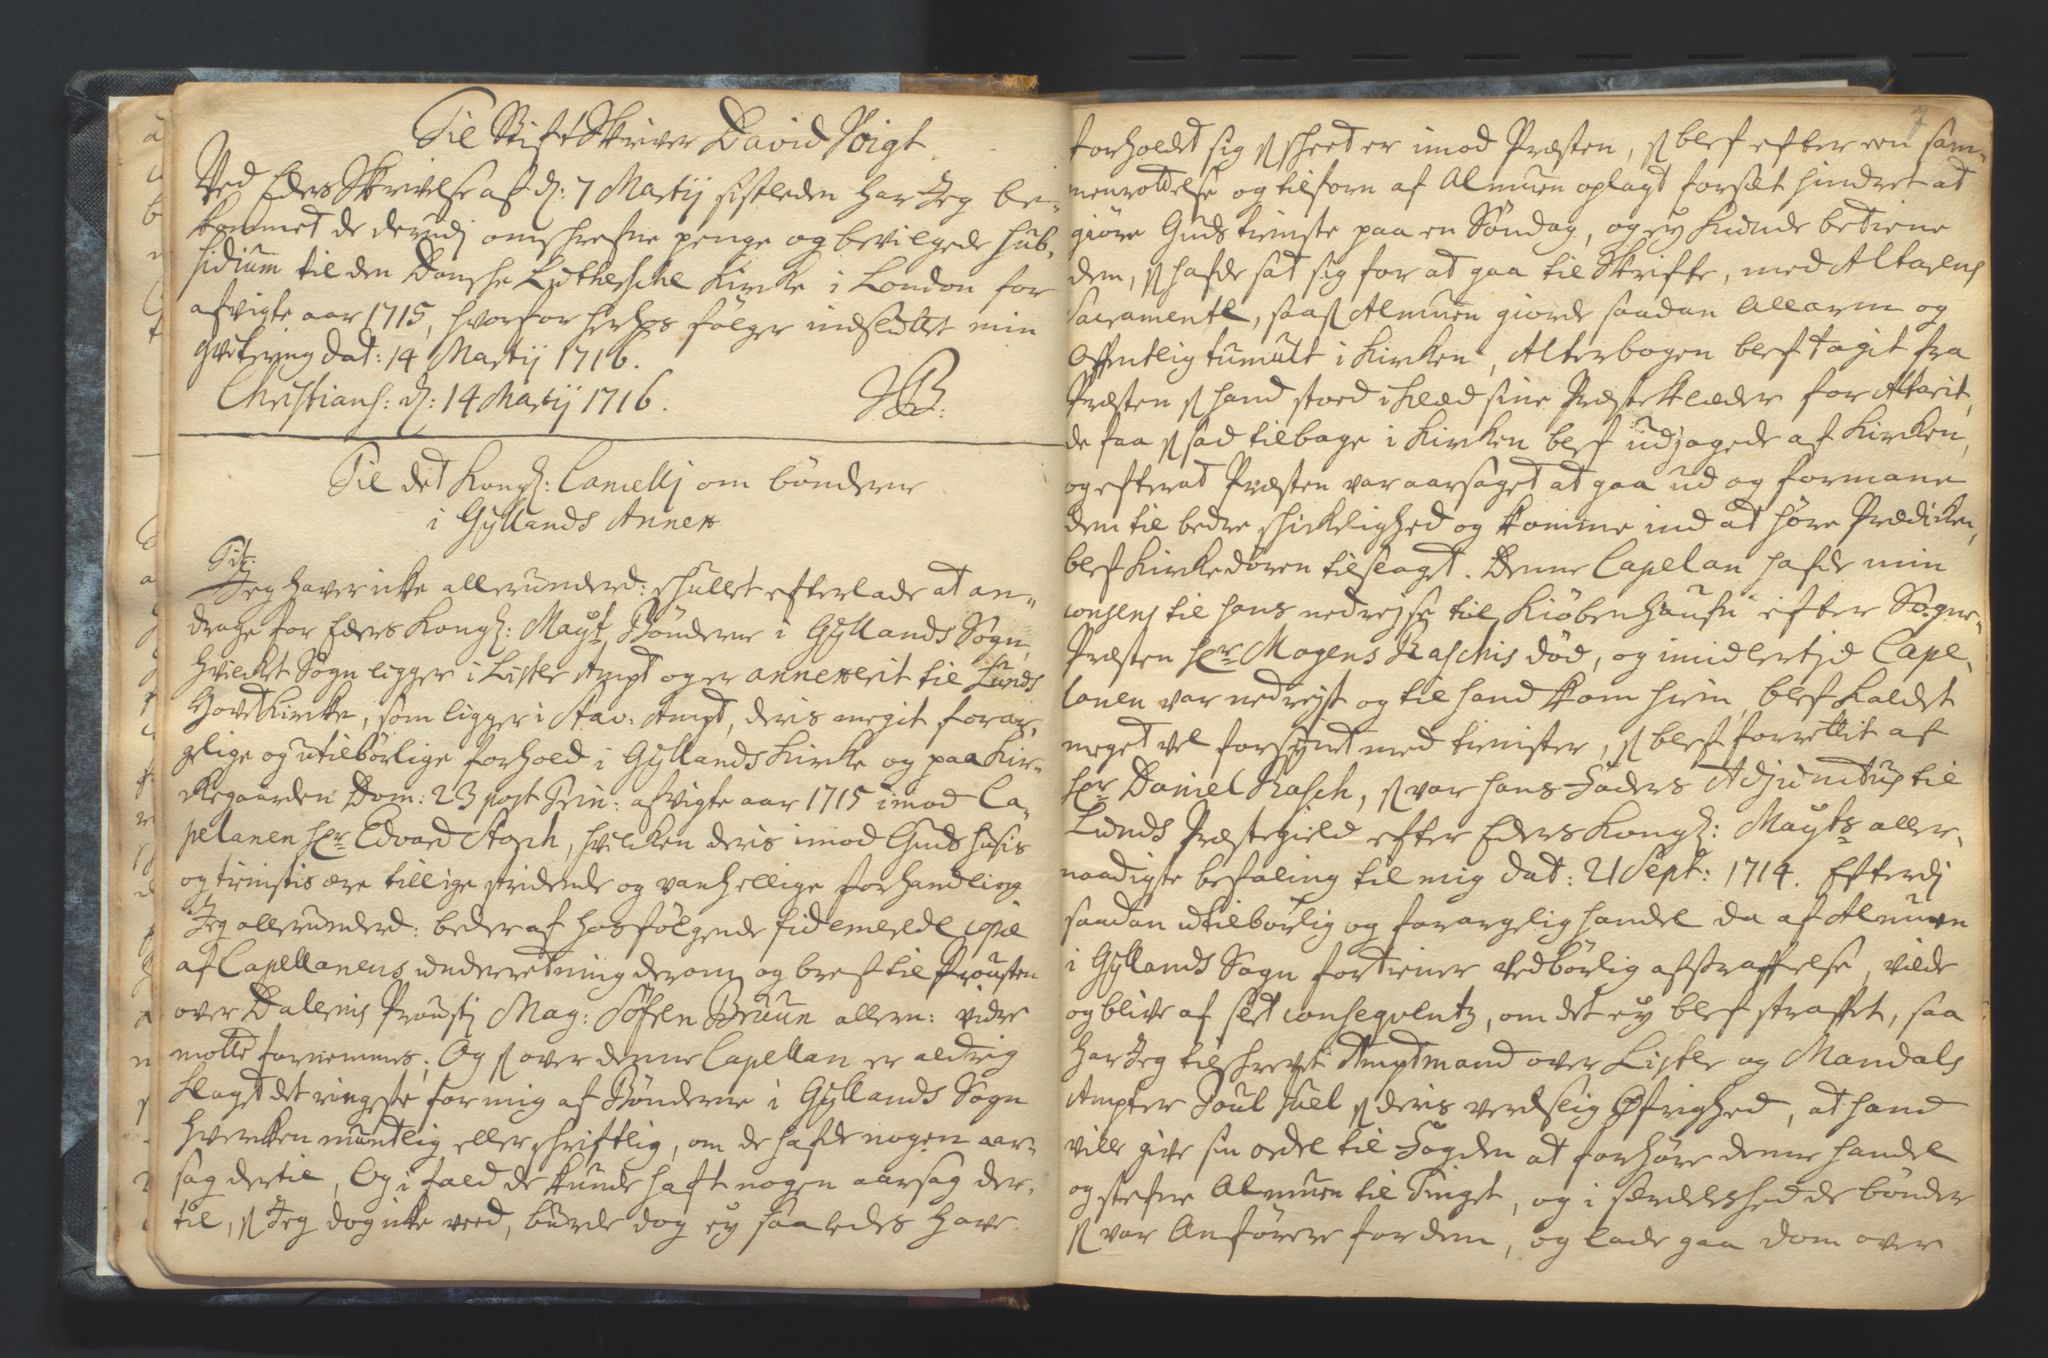 Til StiftSkriver David Voigt.
Ved Eders Skrivelse af d: 7 Martij sistleden har Jeg be-
kommet de derudj omskrefne penge og bevilgede sub-
sidium til den Danske Lutherske Kirke i London for
afvigte aar 1715, hvorfor herhos følger indsluttet min
qvitering dat: 14 Martij 1716.
Christians: d: 14 Martij 1716.
JB:
Til det Kongl: Cancellj om bønderne
i Gyllands Annex
Tit:
Jeg haver icke allerunderd: skullet efterlade at an-
drage for Eders Kongl: Mayt Bønderne i Gyllands Sogn,
hvilcket Sogn ligger i Lister Ampt og er annexerit til Lunds
HovetKircke, som ligger i Stav: Ampt, deris meget forar-
gelige og utilbørlige forhold i Gyllands Kircke og paa Kir-
ckegaarden Dom: 23 post Trin: afvigte aar 1715 imod Ca-
pelanen Hr Edvard Stoph, hvilcken deris imod Guds Husis
og tienistis ære tillige stridende og vanhellige forhandling
Jeg allerunderd: beder af hosfølgende fidemerede copie
af Capellanens underretning derom og bref til Prousten
over Dalernis Proustj Mag: Søfren Bruun allern: vidre
motte fornemmes; Og som over denne Capellan er aldrig
klaget det ringeste for mig af Bønderne i Gyllands Sogn
hvercken muntlig eller skriftlig, om de hafde nogen aar-
sag dertil, Og i fald de kunde haft nogen aarsag der-
til, som Jeg dog icke veed, burde dog ey saaledes have
7
forholdet sig som skeet er imod Præsten, som blef efter een sam-
menrottelse og tilforn af Almuen oplagt forsæt hindret at
giøre Guds tieniste paa en Søndag, og ey kunde betiene
dem, som hafde sat sig for at gaa til Skrifte, med Altarens
Sacramente, saasom Almuen giorde saadan Allarm og
offentlig tumult i Kircken, Alterbogen blef tagit fra
Præsten som hand stoed iklæd sine Præsteklæder for Altarit,
de faa som sad tilbage i Kircken blef udjagede af Kircken,
og efterat Præsten var aarsaget at gaa ud og formane
dem til bedre skickelighed og komme ind at høre Prædicken,
blef Kirckedøren tilslaget. Denne Capelan hafde min
consens til hans nedrejse til Kiøbenhaufn efter Sogne-
Præsten Hr Mogens Raschis død, og imidlertjd Cape-
lanen var nedrejst og til hand kom hiem blef kaldet
meget vel forsynet med tienister, som blef forrettit af
Hr Daniel Rasch, som var hans Faders Adjunctus til
Lunds Præstegield efter Eders Kongl: Mayts aller-
naadigste befaling til mig dat: 21 Sept: 1714. Efterdj
saadan utilbørlig og forargelig handel da af Almuen
i Gyllands Sogn fortiener tilbørlig afstraffelse, vilde
og blive af slet conseqventz, om det ey blef straffet, saa
har Jeg tilskrevet Amptmand over Lister og Mandals
Ampter Poul Juel som deris verdslig Øfrighed, at hand
ville give sin ordre til Fogden at forhøre denne handel
og stefne Almuen til Tinget, og i særdeleshed de bønder
som var Anførere for dem, og lade gaa dom over